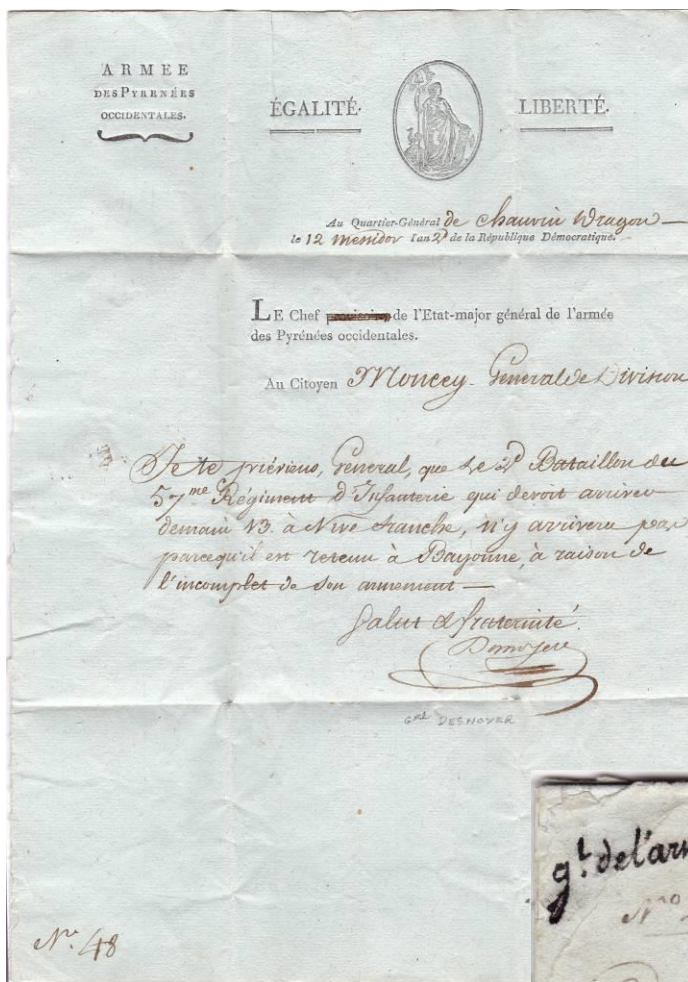 ARMÉE
DES PYRENÉES
OCCIDENTALES.
ÉGALITÉ.
LIBERTÉ.
Au Quartier-Général de Chauvin Dragon
le 12 messidor l'an 2d de la République Démocratique.
LE Chef provisoire de l'Etat-major général de l'armée
des Pyrénées occidentales.
Au Citoyen Moncey Général de Division
Je te préviens, Général, que le 2d Bataillon du
57me Régiment d'Infanterie qui devoit arriver
demain 13. à Nive franche, n'y arrivera pas
parcequ'il est retenu à Bayonne, à raison de
l'incomplet de son armement
Salut & fraternité.
Gal DESNOYER
No. 48
gl. de l'arm
No